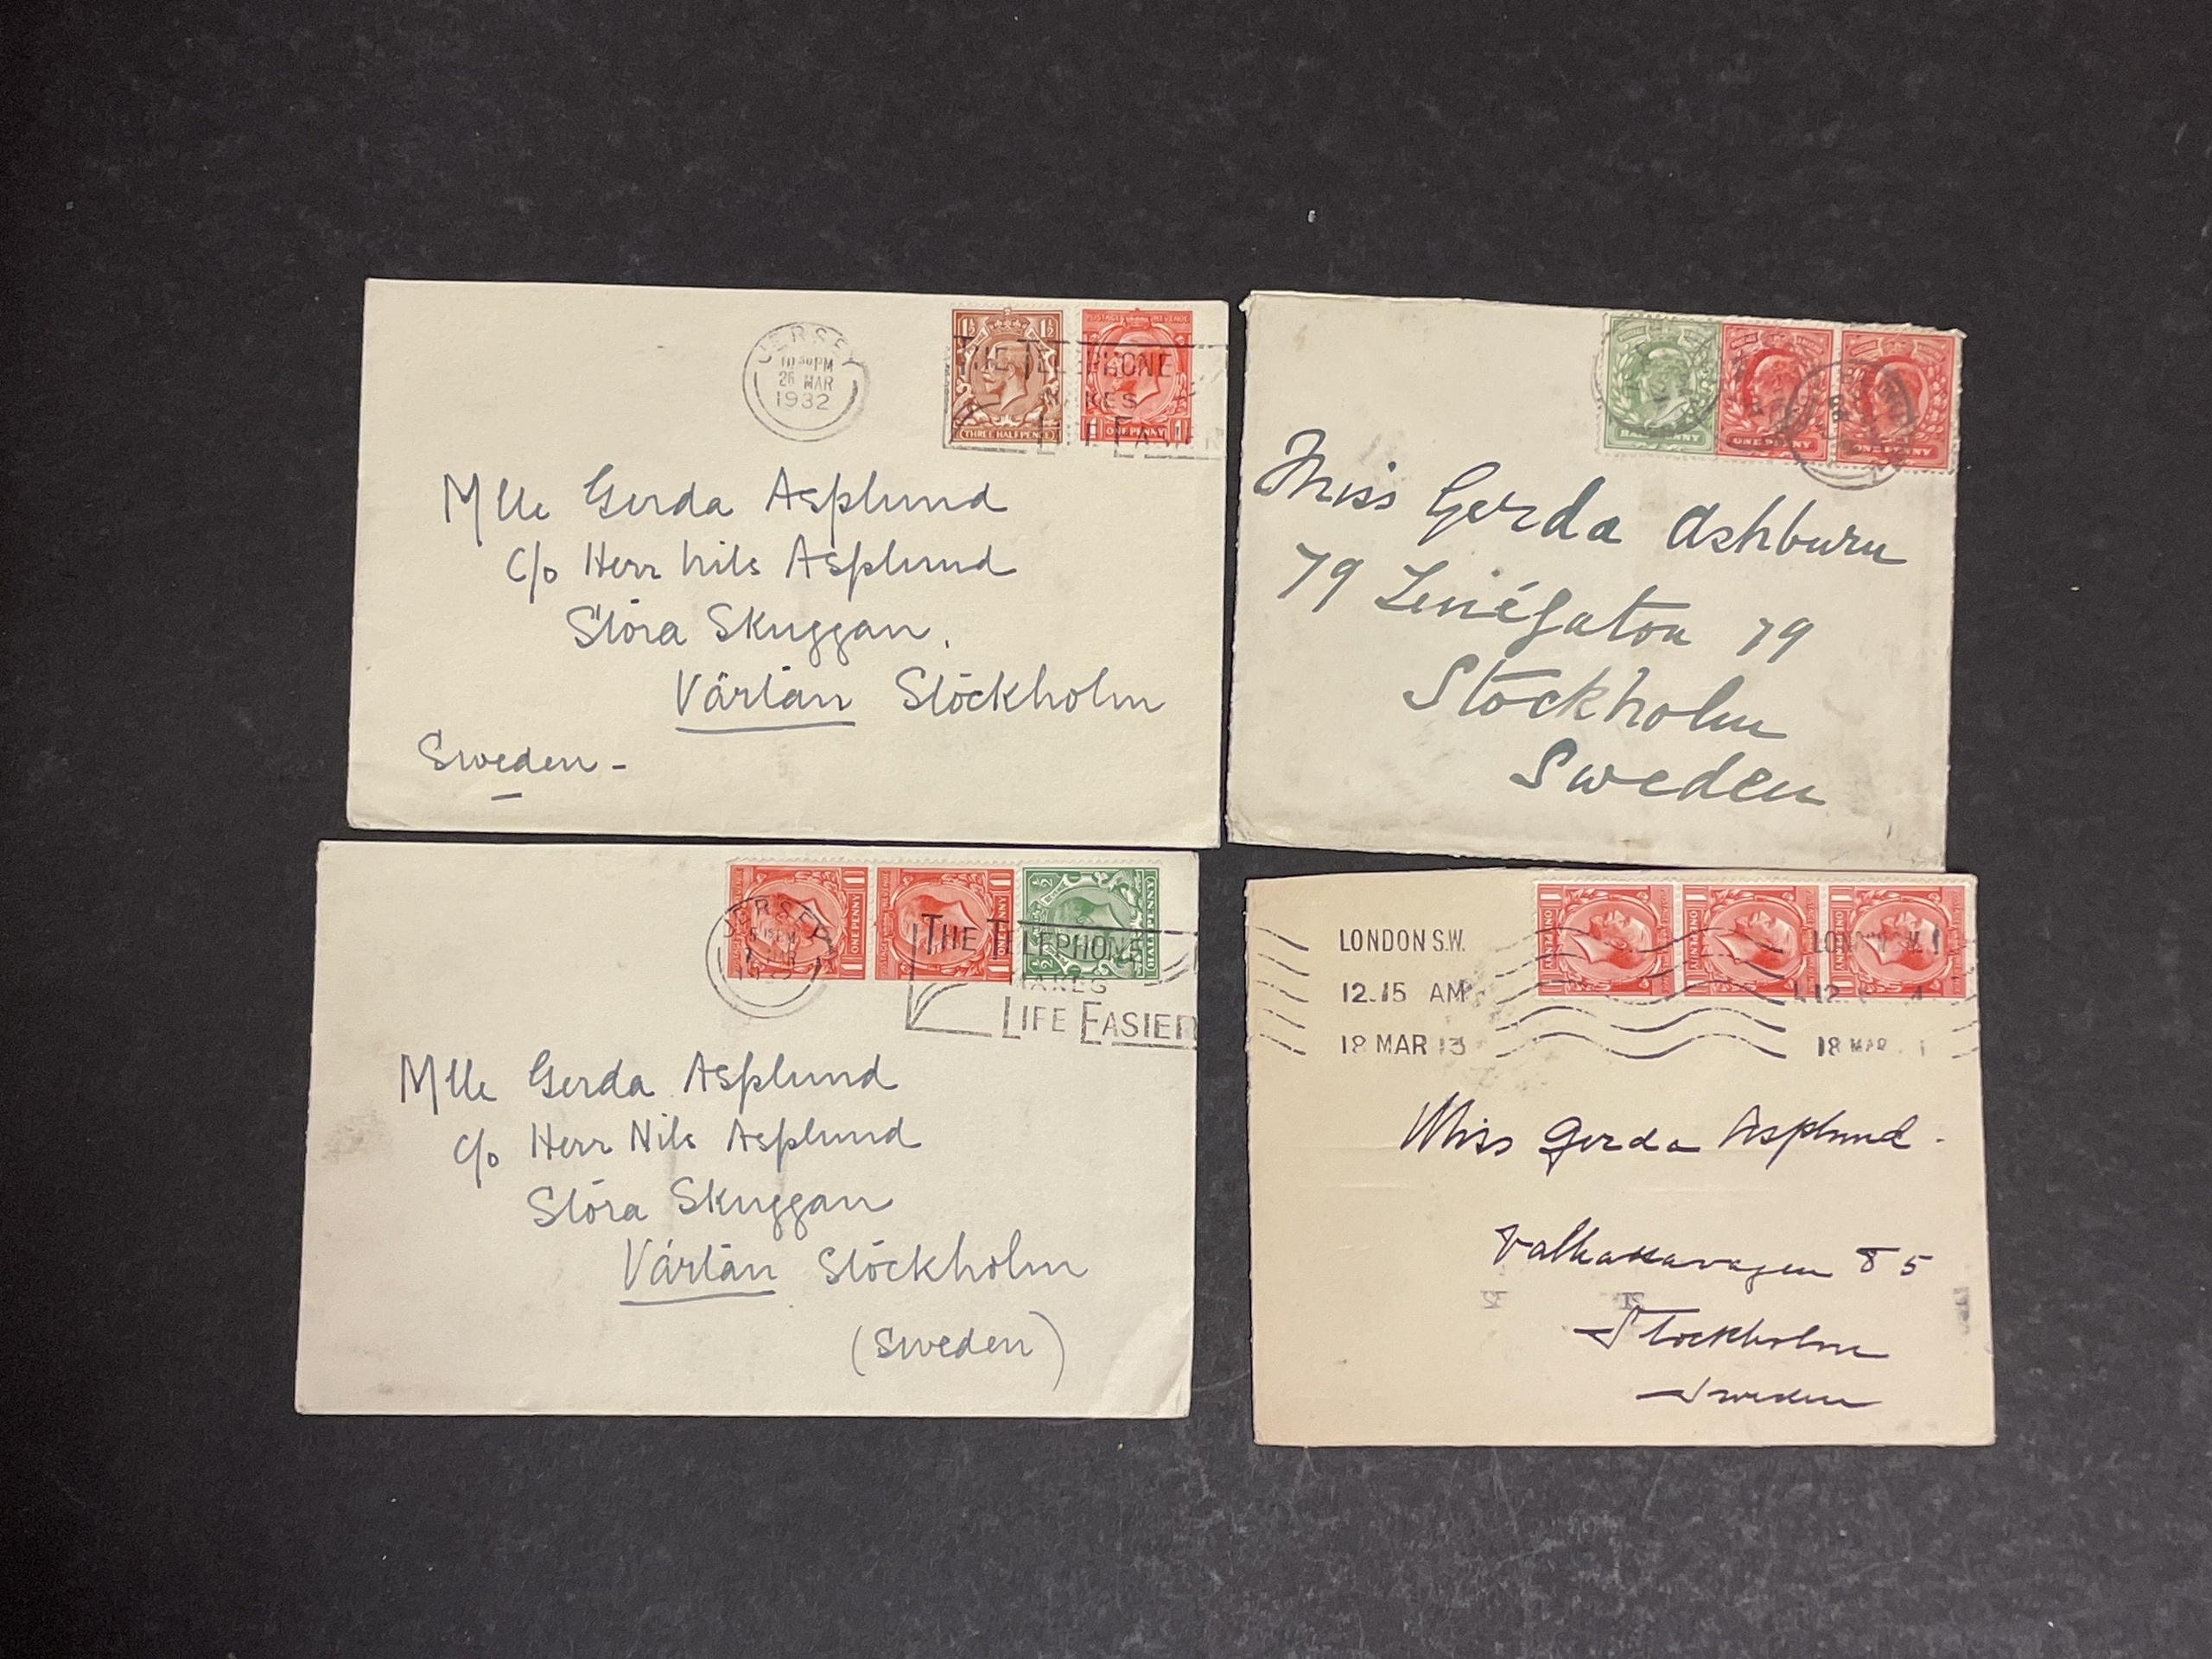 JERSEY
10 30 PM
26 MAR
1932
1½ 1½
THREE HALF PENCE
POSTAGE REVENUE
1 ONE PENNY 1
THE TELEPHONE
MAKES
LIFE EASIER
Mlle Gerda Asplund
c/o Herr Nils Asplund
Stora Skuggan.
Värtan Stockholm
Sweden -
HALF PENNY
ONE PENNY
ONE PENNY
Miss Gerda Ashburn
79 Liniégaton 79
Stockholm
Sweden
JERSEY
MAR
ONE PENNY
ONE PENNY
THE TELEPHONE
MAKES
LIFE EASIER
Mlle Gerda Asplund
c/o Herr Nils Asplund
Stora Skuggan
Värtan Stockholm
(Sweden)
LONDON S.W.
12.15 AM
18 MAR 13
ONE PENNY
ONE PENNY
ONE PENNY
LONDON S.W.1
18 MAR
Miss Gerda Asplund.
Valhallavagen 85
Stockholm
Sweden